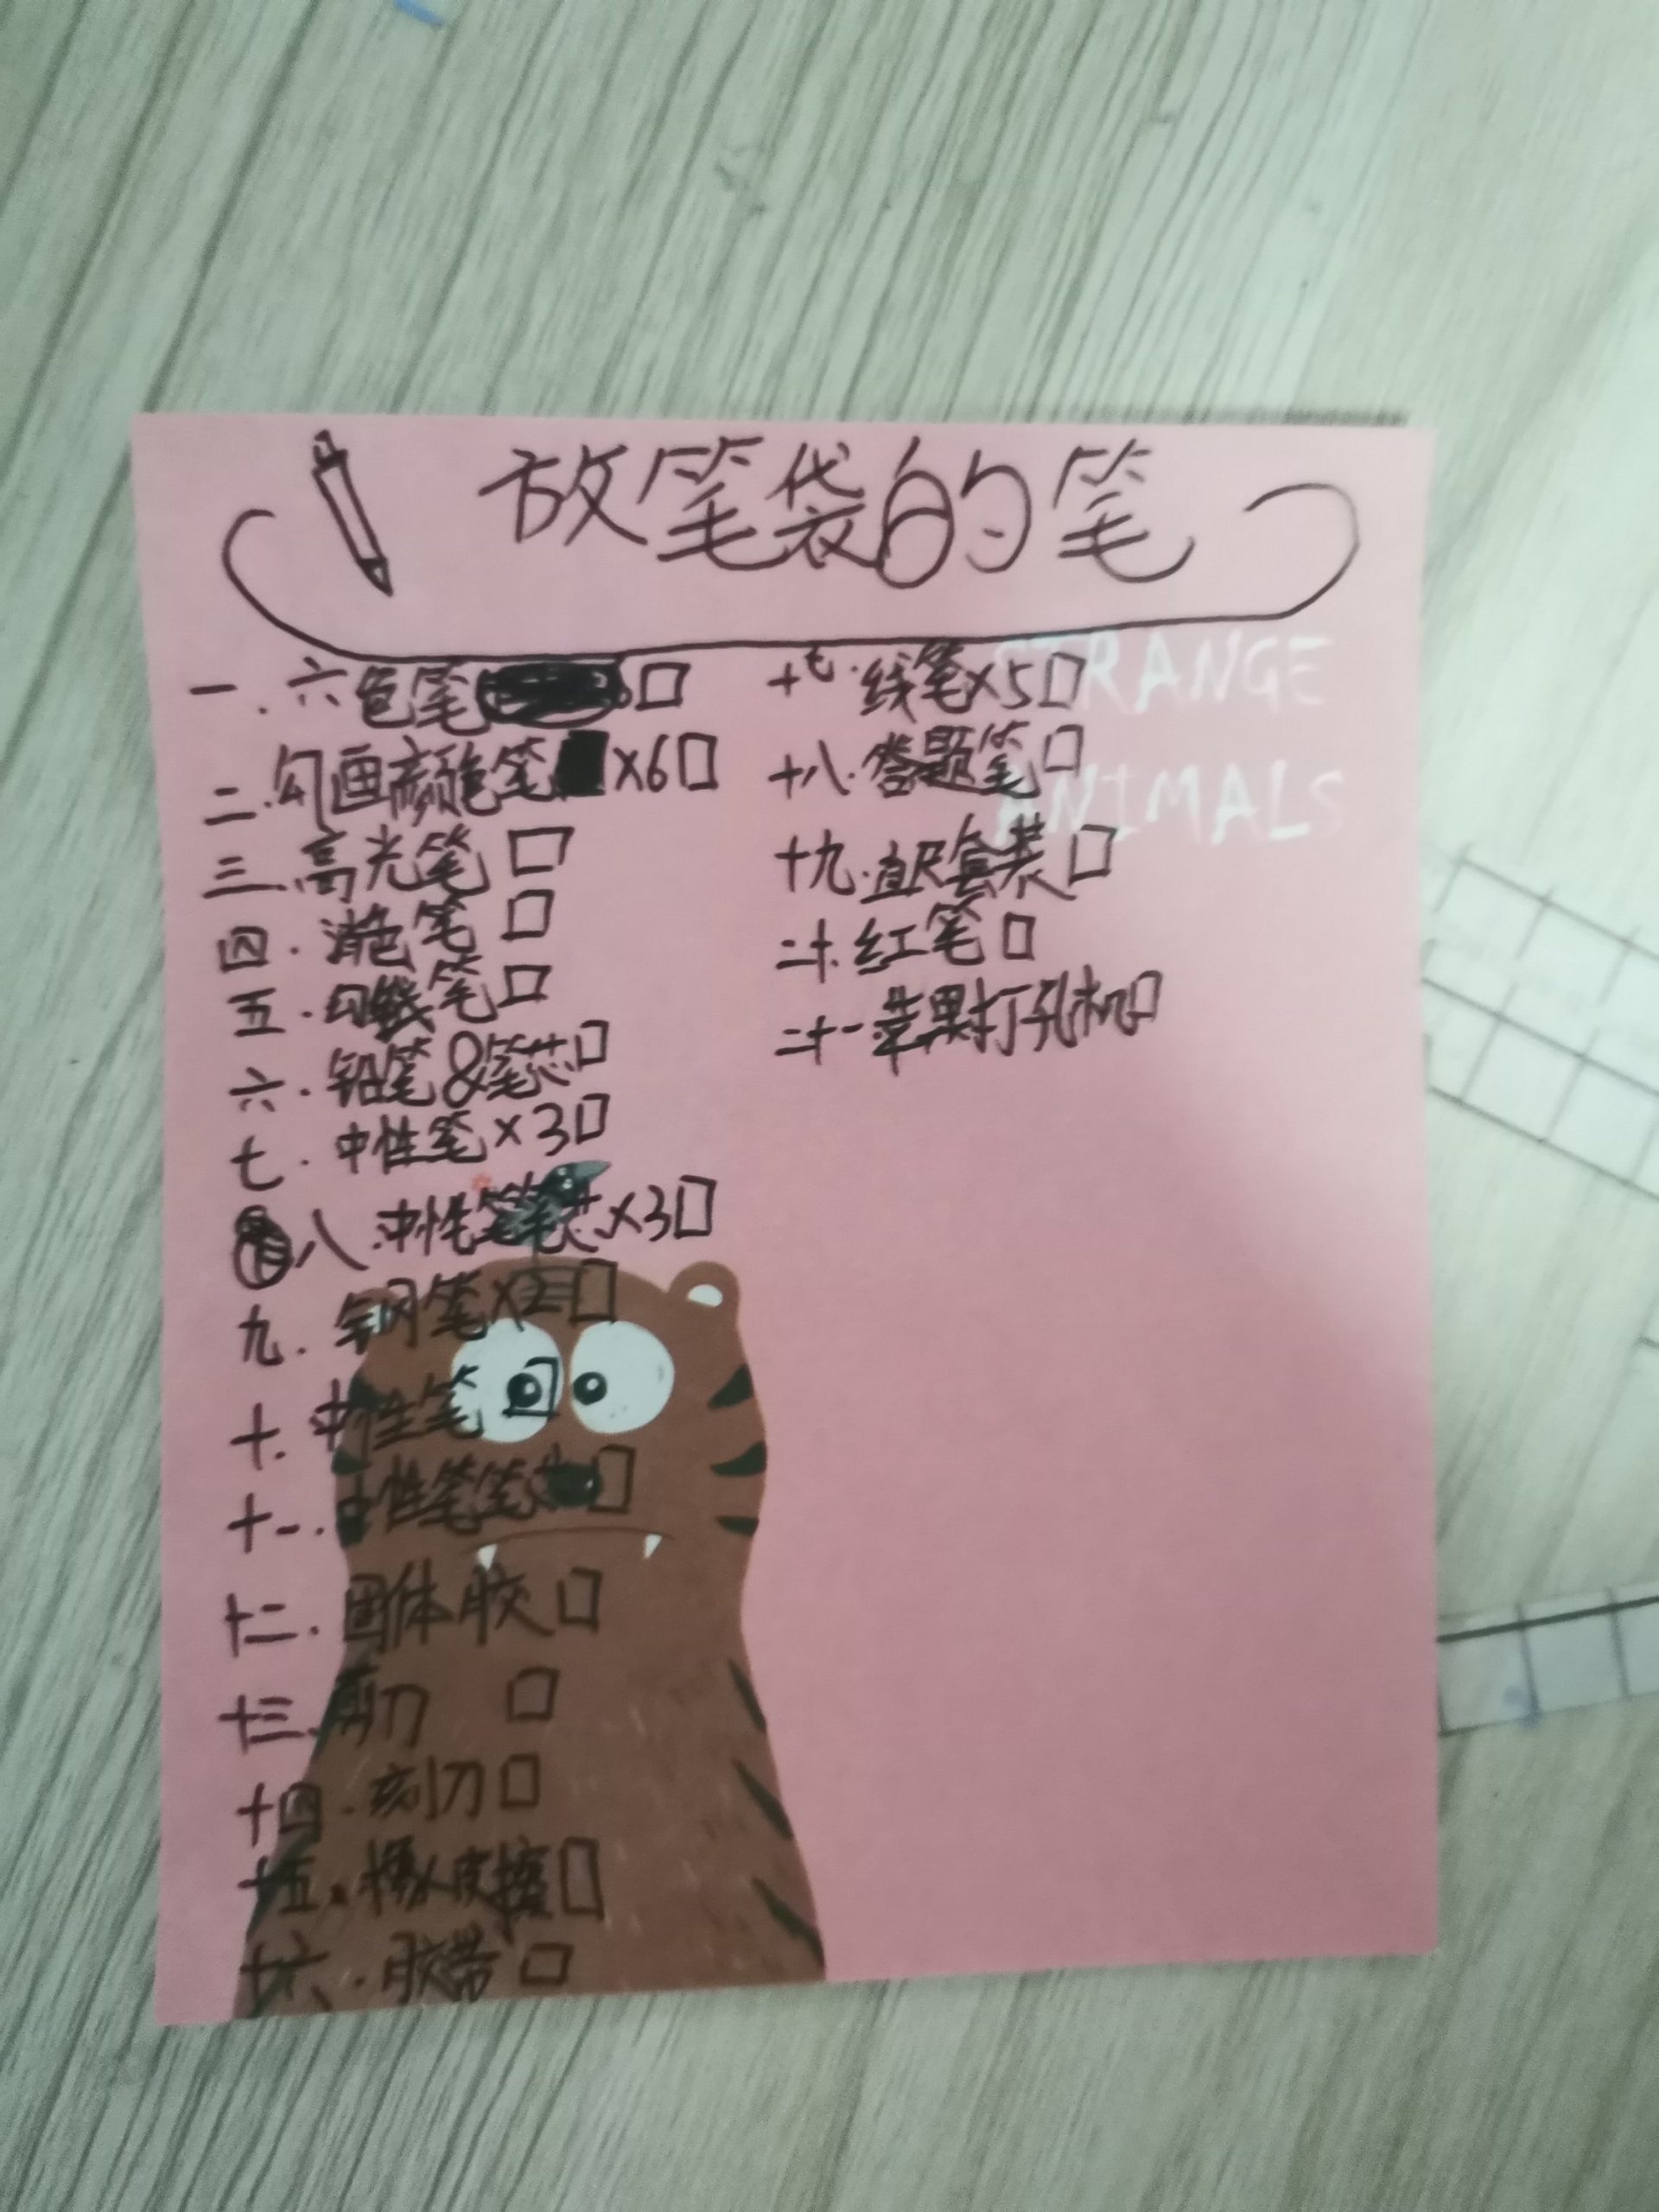 放笔袋的笔
一.六色笔□
二.勾画颜色笔x6□
三.高光笔□
四.消色笔□
五.勾线笔□
六.铅笔&笔芯□
七.中性笔x3□
八.中性笔笔芯x3□
九.钢笔x2□
十.中性笔□
十一.中性笔笔芯□
十二.固体胶□
十三.剪刀□
十四.刻刀□
十五.橡皮擦□
十六.胶带□
十七.线笔x5□
十八.答题笔□
十九.直尺套装□
二十.红笔□
二十一.苹果打孔机□
STRANGE
ANIMALS